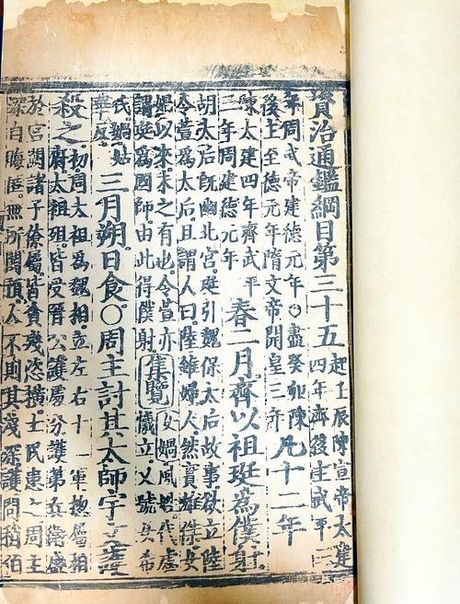 資治通鑑綱目第三十五
起壬辰陳宣帝太建
四年齊後主武平三
年周武帝建德元年〇盡癸卯陳
後主至德元年隋文帝開皇三年
凡十二年
陳太建四年齊武平
三年周建德元年
春二月齊以祖珽爲僕射
胡太后既幽北宮珽引魏保太后故事欲立陸
令萱爲太后且謂人曰陸雖婦人然實雄傑女
媧以來未之有也令萱亦
謂珽爲國師由此得僕射
集覽
女媧風姓代虙
犧立又號女希
氏媧姑
華反
三月朔日食〇周主討其太師宇文護
殺之
初周太祖爲魏相立左右十二軍總屬相
府太祖殂皆受晉公護處分護第兵衛盛
於宮闕諸子僚屬皆貪殘恣橫士民患之周主
深自晦匿無所關預人不測其淺深護問稍伯